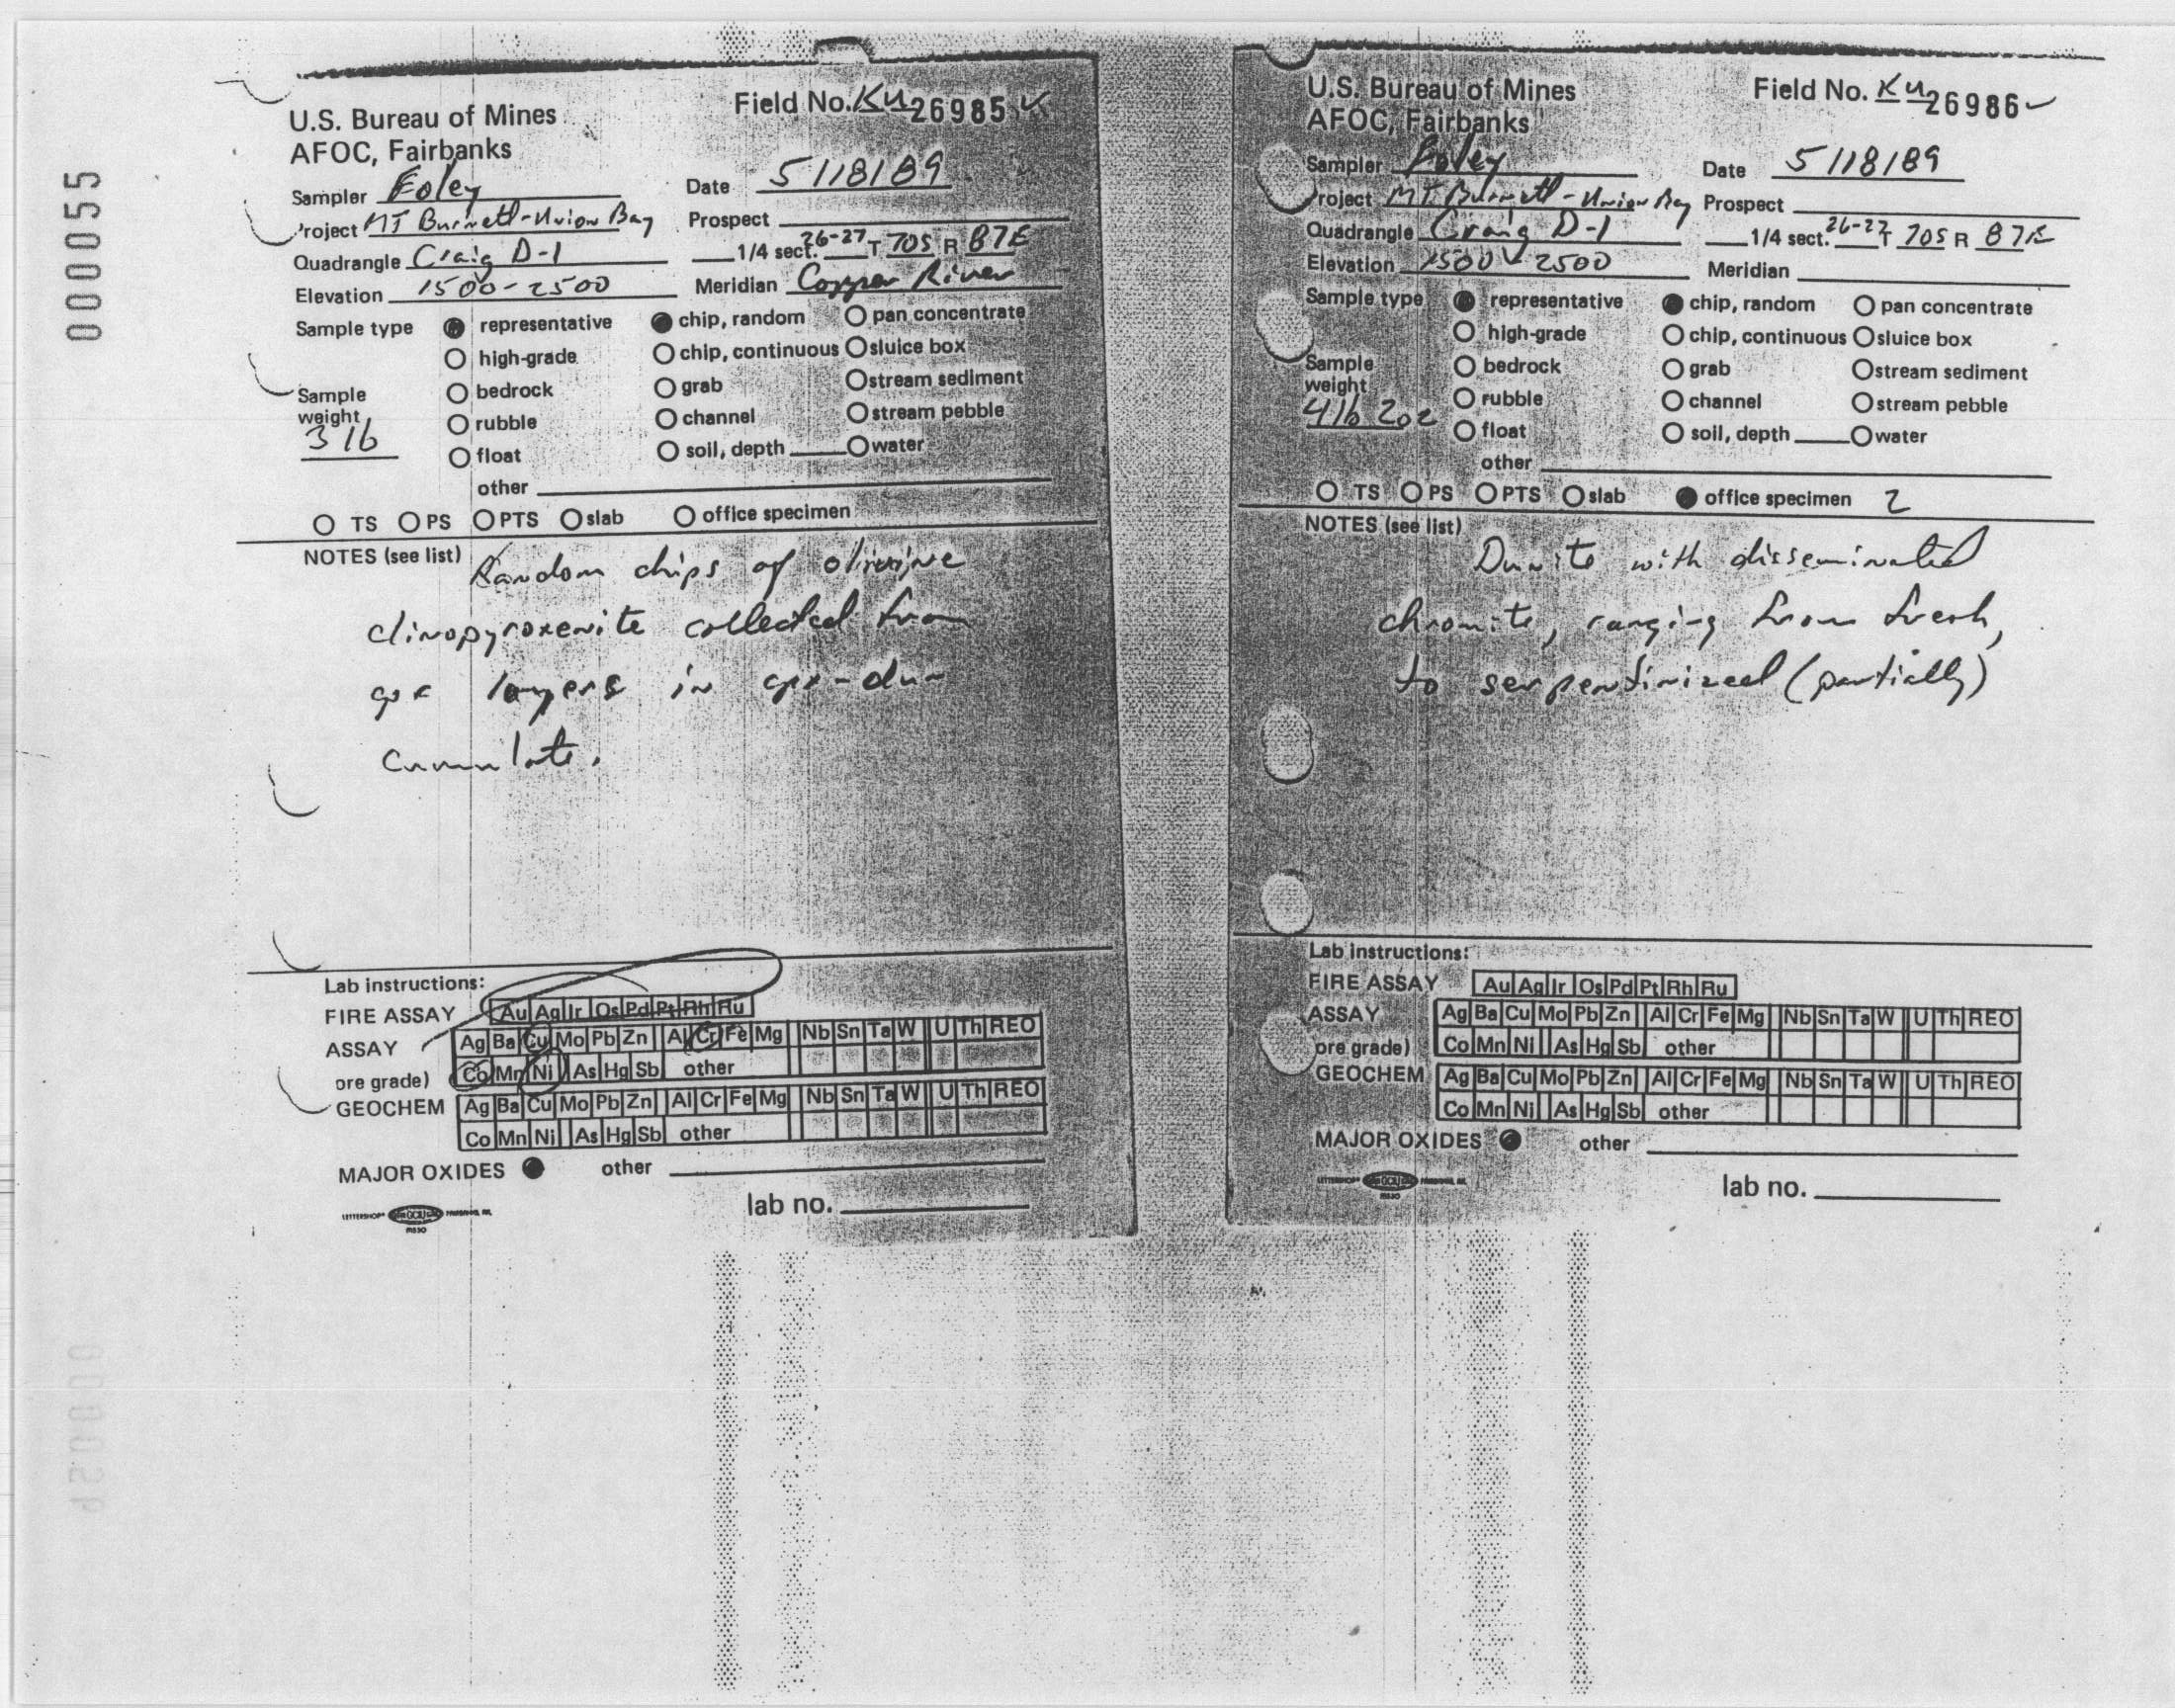 000055
U.S. Bureau of Mines
AFOC, Fairbanks
Field No. Ku 26985 ✓
Sampler Foley
Date 5/18/89
Project MT Burnett-Union Bay
Prospect
Quadrangle Craig D-1
1/4 sect. 26-27 T 70S R 87E
Elevation 1500-2500
Meridian Copper River
Sample type ● representative ● chip, random ○ pan concentrate
○ high-grade ○ chip, continuous ○ sluice box
Sample weight 3 lb
○ bedrock ○ grab ○ stream sediment
○ rubble ○ channel ○ stream pebble
○ float ○ soil, depth ○ water
other
○ TS ○ PS ○ PTS ○ slab ○ office specimen
NOTES (see list) Random chips of olivine
clinopyroxenite collected from
cpx layers in cpx-dun
cumulate.
Lab instructions:
FIRE ASSAY Au Ag Ir Os Pd Pt Rh Ru
ASSAY Ag Ba Cu Mo Pb Zn Al Cr Fe Mg Nb Sn Ta W U Th REO
ore grade) Co Mn Ni As Hg Sb other
GEOCHEM Ag Ba Cu Mo Pb Zn Al Cr Fe Mg Nb Sn Ta W U Th REO
Co Mn Ni As Hg Sb other
MAJOR OXIDES ● other
lab no.
U.S. Bureau of Mines
AFOC, Fairbanks
Field No. Ku 26986 ✓
Sampler Foley
Date 5/18/89
Project MT. Burnett-Union Bay
Prospect
Quadrangle Craig D-1
1/4 sect. 26-27 T 70S R 87E
Elevation 1500-2500
Meridian
Sample type ● representative ● chip, random ○ pan concentrate
○ high-grade ○ chip, continuous ○ sluice box
Sample weight 4 lb 2oz
○ bedrock ○ grab ○ stream sediment
○ rubble ○ channel ○ stream pebble
○ float ○ soil, depth ○ water
other
○ TS ○ PS ○ PTS ○ slab ● office specimen 2
NOTES (see list)
Dunite with disseminated
chromite, ranging from fresh,
to serpentinized (partially)
Lab instructions:
FIRE ASSAY Au Ag Ir Os Pd Pt Rh Ru
ASSAY Ag Ba Cu Mo Pb Zn Al Cr Fe Mg Nb Sn Ta W U Th REO
ore grade) Co Mn Ni As Hg Sb other
GEOCHEM Ag Ba Cu Mo Pb Zn Al Cr Fe Mg Nb Sn Ta W U Th REO
Co Mn Ni As Hg Sb other
MAJOR OXIDES ● other
lab no.